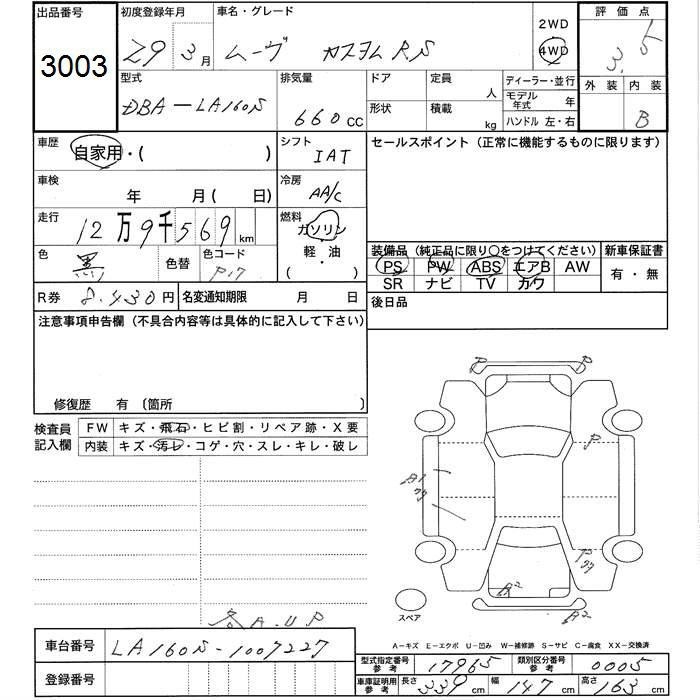 出品番号
3003
初度登録年月
29 3月
車名・グレード
ムーヴ カスタム RS
2WD
4WD
評価点
3.5
外装 内装
B
型式
DBA-LA160S
排気量
660 CC
ドア
形状
定員
人
積載
kg
ディーラー・並行
モデル年式 年
ハンドル 左・右
車歴
自家用・( )
シフト
IAT
セールスポイント(正常に機能するものに限ります)
車検
年 月( 日)
冷房
AA/C
走行
12万9千569km
燃料
ガソリン
軽・油
( )
色
黒
色替
色コード
P17
装備品(純正品に限り○をつけてください)
新車保証書
PS PW ABS エアB AW
SR ナビ TV カワ
有・無
R券 8.430円
名変通知期限 月 日
後日品
注意事項申告欄(不具合内容等は具体的に記入して下さい)
修復歴 有(箇所
検査員記入欄
FW キズ・飛石・ヒビ割・リペア跡・X要
内装 キズ・汚レ・コゲ・穴・スレ・キレ・破レ
P P
P
A1
P
A2
A2
スペア
各A.UP
A-キズ E-エクボ U-凹み W-補修跡 S-サビ C-腐食 XX-交換済
車台番号 LA160S-1007227
登録番号
型式指定番号参考 17965
類別区分番号参考 0005
車庫証明用参考 長さ 339cm 幅 147cm 高さ 163cm